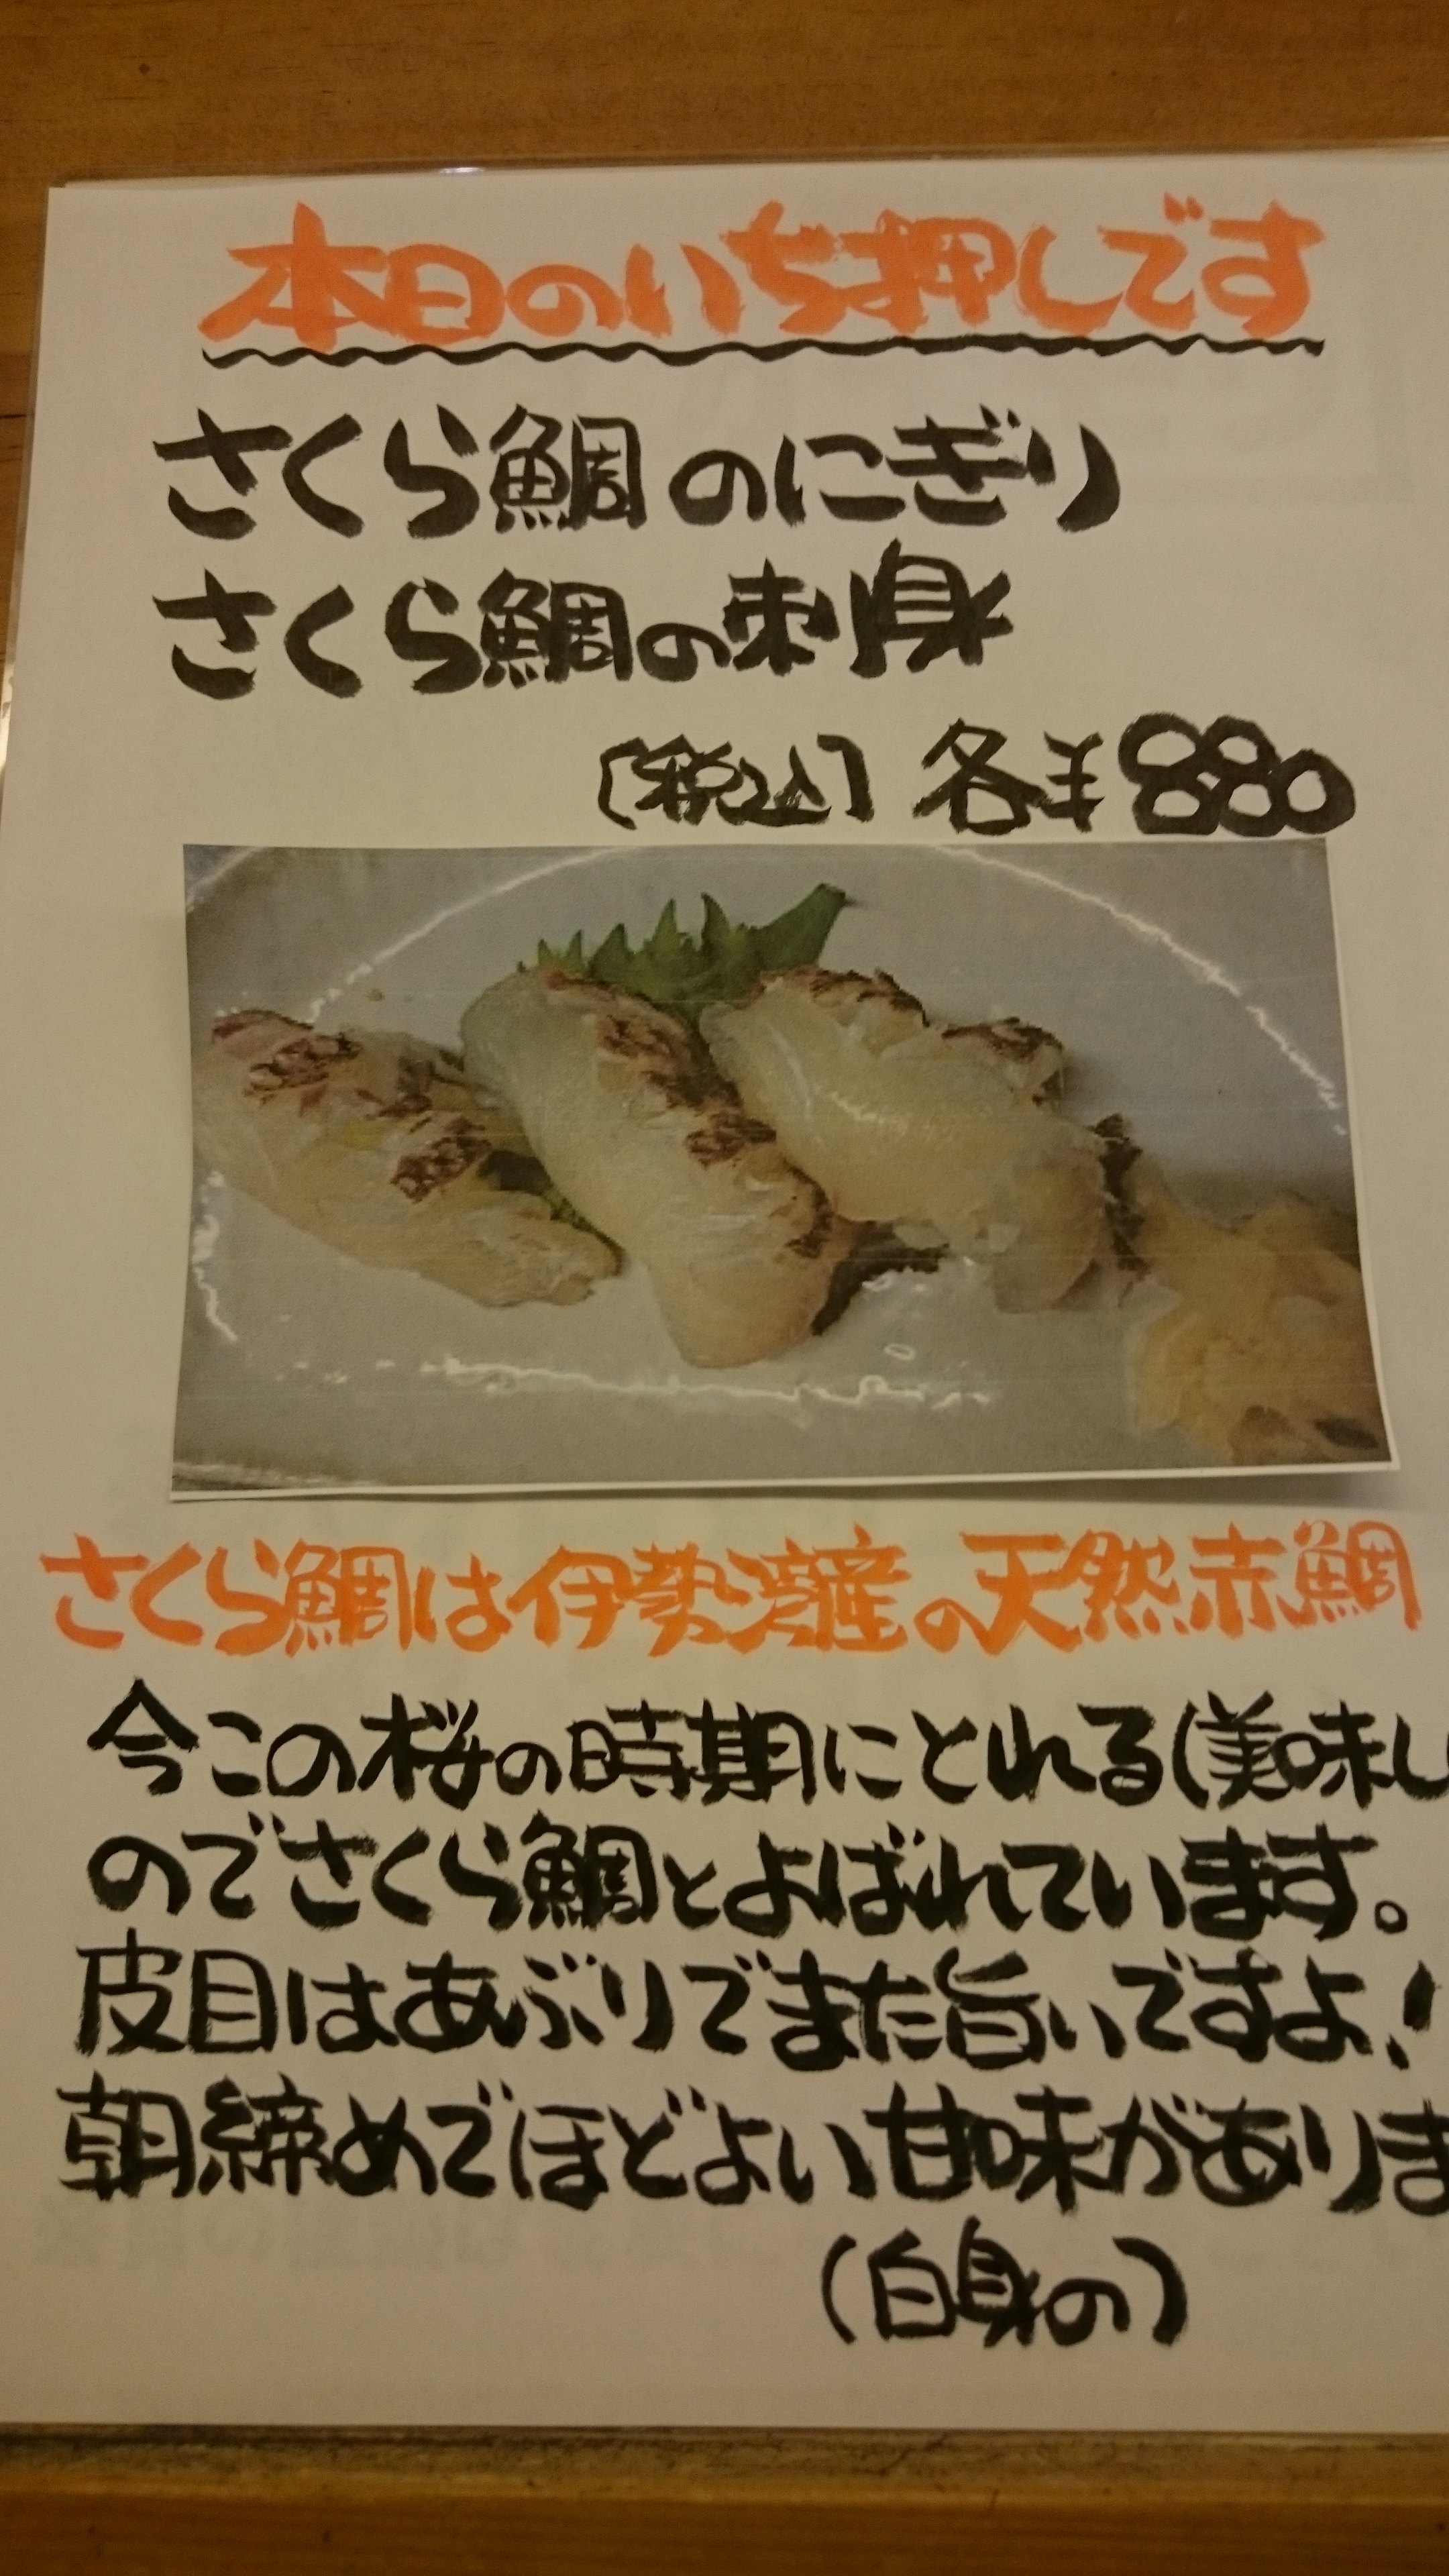 本日のいち押しです
さくら鯛のにぎり
さくら鯛の刺身
[税込] 各¥880
さくら鯛は伊勢湾産の天然赤鯛
今この桜の時期にとれる(美味し
のでさくら鯛とよばれています。
皮目はあぶりでまた旨いですよ!
朝締めでほどよい甘味がありま
(白身の)